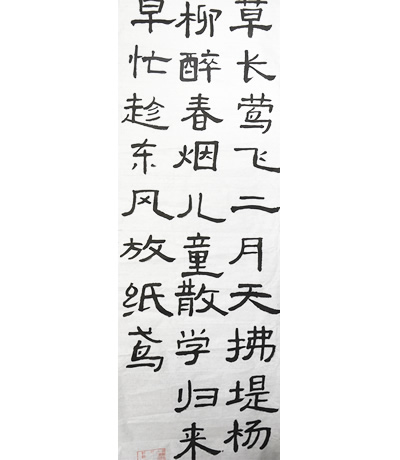 草长莺飞二月天拂堤杨
柳醉春烟儿童散学归来
早忙趁东风放纸鸢